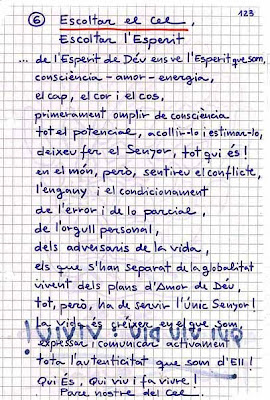 123
6 Escoltar el Cel,
Escoltar l'Esperit
... de l'Esperit de Déu ens ve l'Esperit que som,
consciència - amor - energia,
el cap, el cor i el cos,
primerament omplir de consciència
tot el potencial, acollir-lo i estimar-lo,
deixeu fer el Senyor, tot qui és !
en el món, però, sentireu el conflicte,
l'engany i el condicionament
de l'error i de lo parcial,
de l'orgull personal,
dels adversaris de la vida,
els que s'han separat de la globalitat
vivent dels plans d'Amor de Déu,
tot, però, ha de servir l'Únic Senyor !
La vida és créixer en el que som,
expressar i comunicar activament
tota l'autenticitat que som d'Ell !
Qui És, Qui viu i fa viure !
Pare nostre del Cel